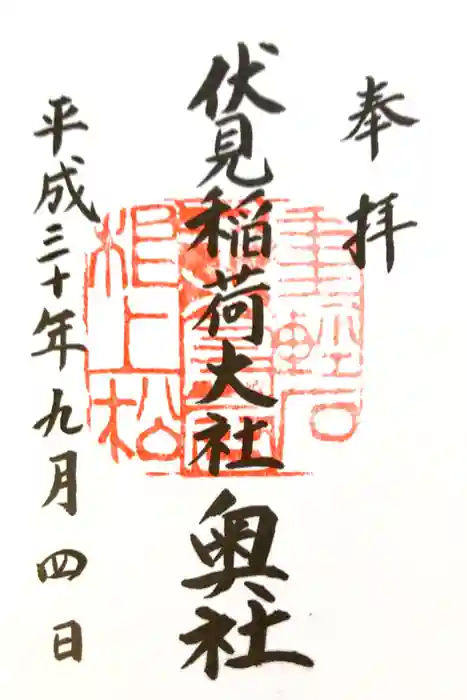 奉拝
伏見稲荷大社奥社
平成三十年九月四日
根上松